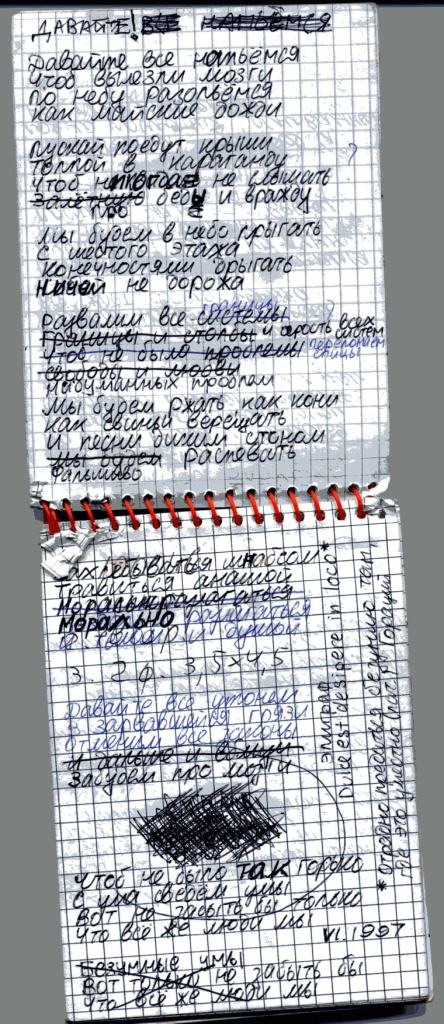 ДАВАЙТЕ! ВСЕ НАПЬЕМСЯ
Давайте все напьёмся
Чтоб вылезли мозги
По небу разольёмся
Как майские дожди
Пускай поедут крыши
Толпой в Караганду
?
Чтоб не слышать
Залётную беды и вражду
про
Мы будем в небо прыгать
С шестого этажа
Конечностями дрыгать
Ничем не дорожа
Развалим все системы
границы
?
Границы и столбы
и серость всех систем
Чтоб не было проблемы
переломаем спицы
свободы и мольбы
Надуманных проблем
Мы будем ржать как кони
Как свиньи верещать
И песни диким стоном
Мы будем распевать
Фальшиво
Травиться анашой
Морально разлагаться
И телом и душой
3. 2ф. 3,5×4,5
Давайте все утонем
В зарвавшейся грязи
Отменим все законы
Забудем про мозги
эпиграф
Dulce est desipere in loco*
там,
где это уместно (лат.) Гораций
Чтоб не было так горько
С ума сведём умы
Вот не забыть бы только
Что все же люди мы
VI.1997
Безумные умы
Вот только не забыть бы
Что все же люди мы